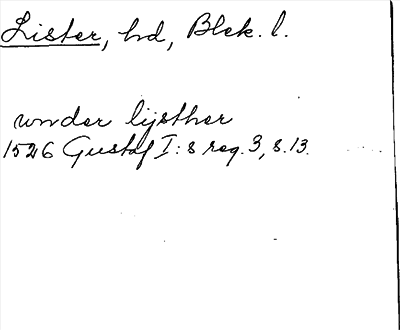 Lister, hd, Blek. l.
under lijsther
1526 Gustaf I:s reg. 3, s. 13.